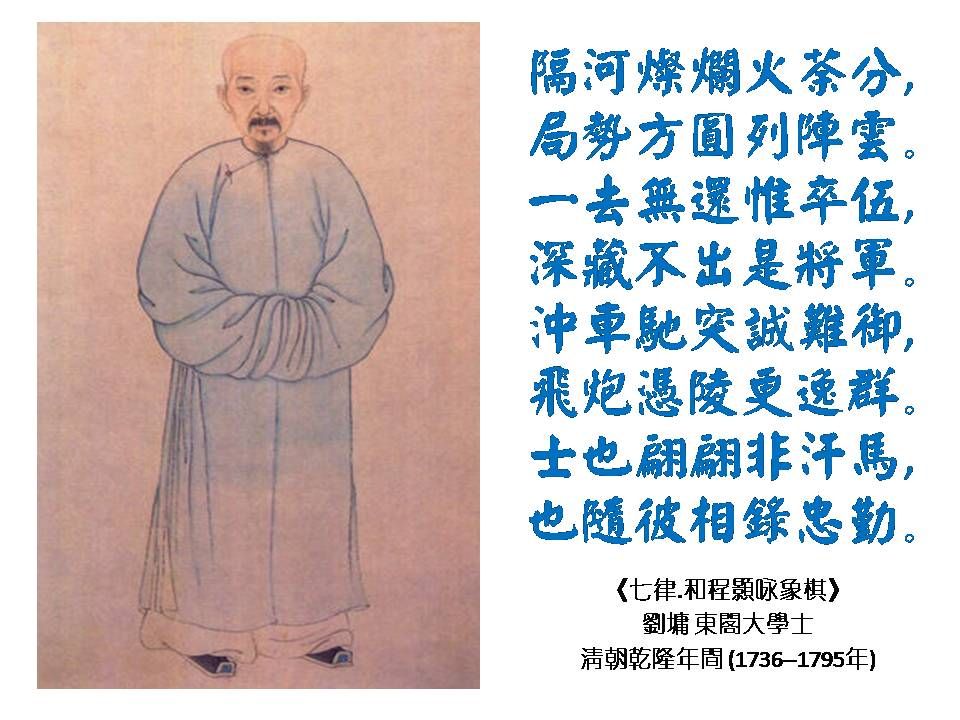 隔河燦爛火荼分,
局勢方圓列陣雲。
一去無還惟卒伍,
深藏不出是將軍。
沖車馳突誠難御,
飛炮憑陵更逸群。
士也翩翩非汗馬,
也隨彼相錄忠勤。
《七律.和程顥咏象棋》
劉墉 東閣大學士
清朝乾隆年間 (1736–1795年)